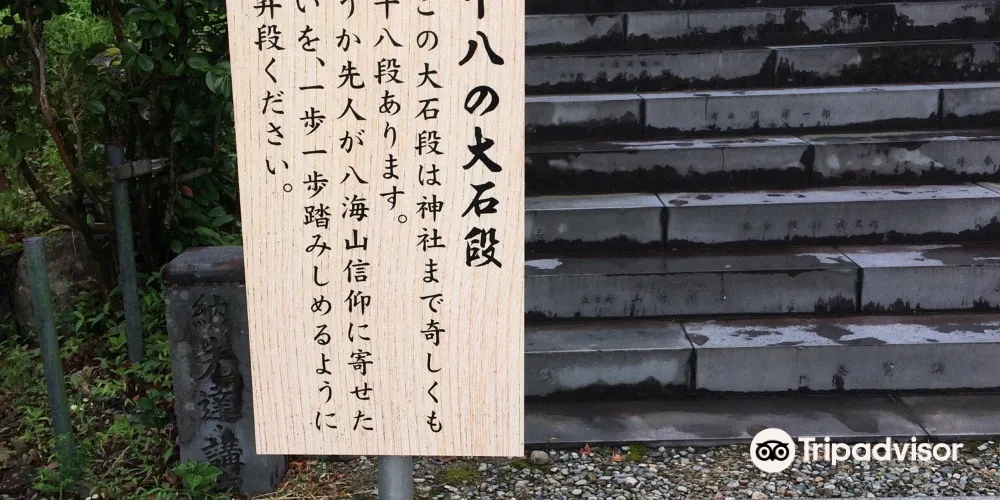 十八の大石段
この大石段は神社まで奇しくも
十八段あります。
うか先人が八海山信仰に寄せた
いを、一歩一歩踏みしめるように
昇段ください。
納
先達講
Tripadvisor